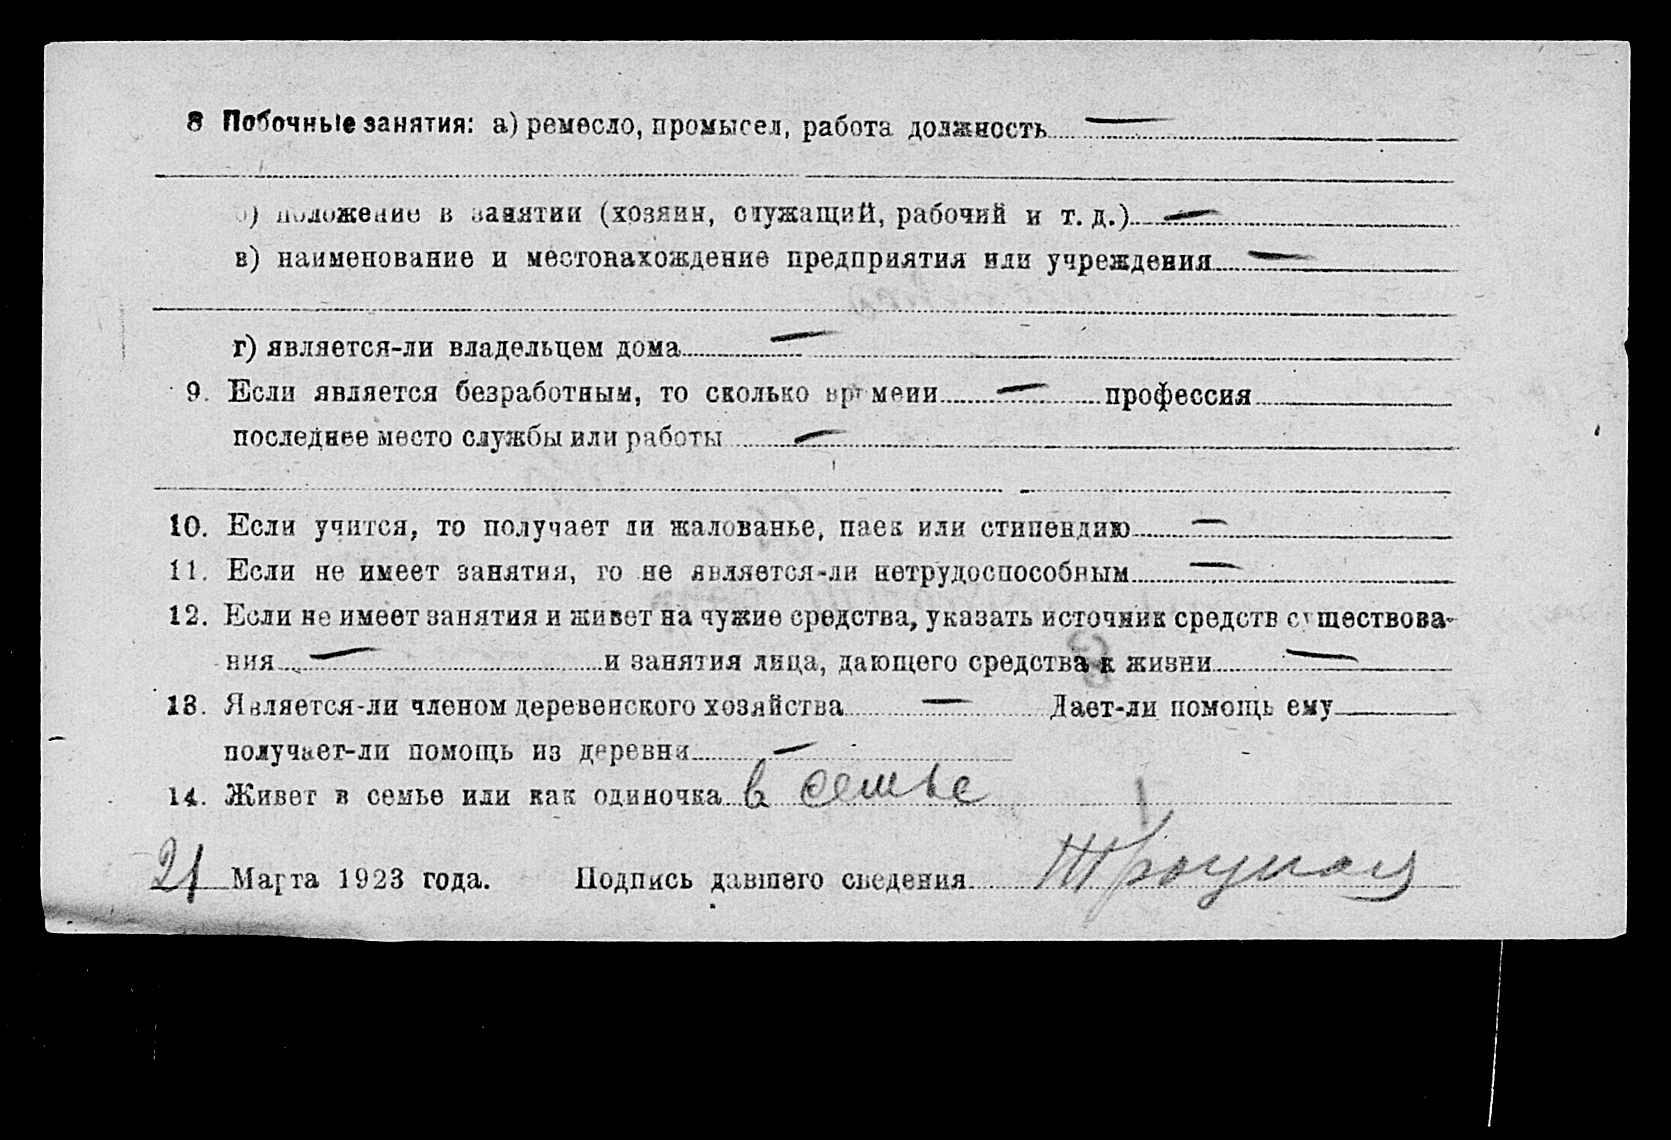 8 Побочные занятия: а) ремесло, промысел, работа должность —
б) положение в занятии (хозяин, служащий, рабочий и т. д.) —
в) наименование и местонахождение предприятия или учреждения —
г) является-ли владельцем дома —
9. Если является безработным, то сколько времени — профессия
последнее место службы или работы —
10. Если учится, то получает ли жалованье, паек или стипендию —
11. Если не имеет занятия, то не является-ли нетрудоспособным —
12. Если не имеет занятия и живет на чужие средства, указать источник средств существова-
ния — и занятия лица, дающего средства к жизни —
13. Является-ли членом деревенского хозяйства — Дает-ли помощь ему
получает-ли помощь из деревни —
14. Живет в семье или как одиночка в семье
21 Марта 1923 года. Подпись давшего сведения